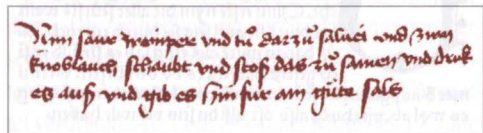 Nim saur weinper und tů darzů saluei und zwen
knoblauch schaubt und stoß das zů samen und druk
es auß und gib es hin für ain gůte sals